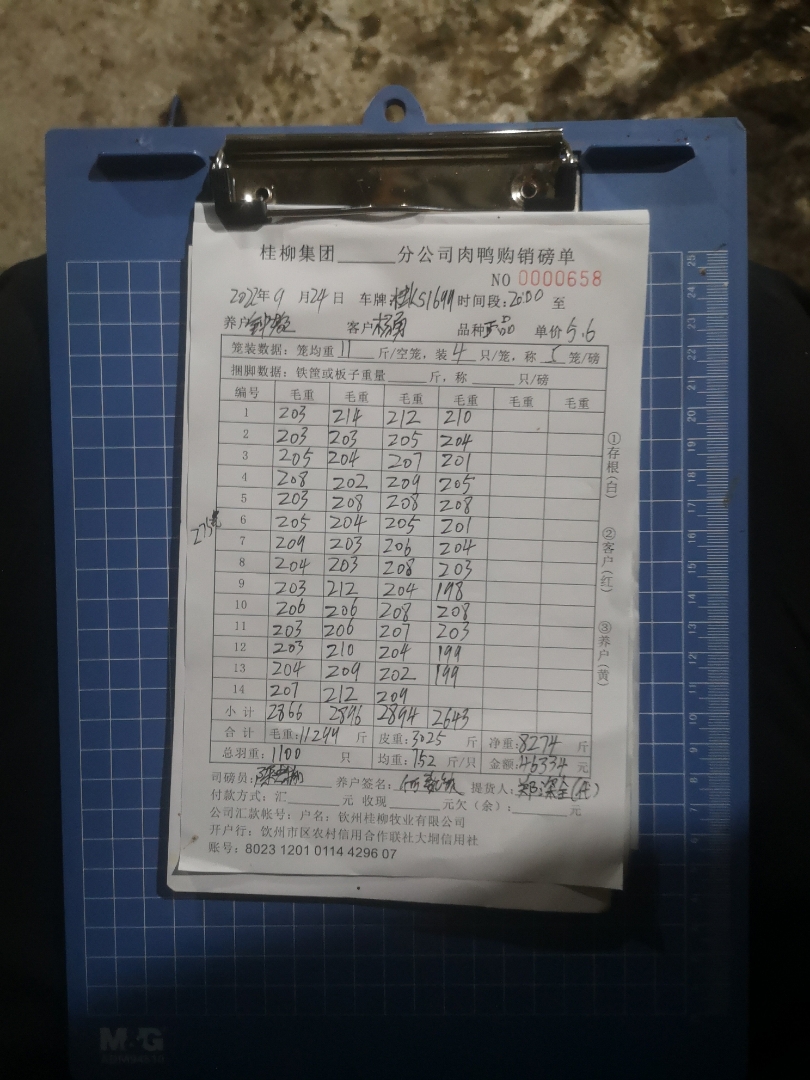 桂柳集团______分公司肉鸭购销磅单
NO 0000658
2022年9月24日 车牌 时间段:20:00 至
养户 客户杨勇 品种正品 单价5.6
笼装数据:笼均重11斤/空笼,装4只/笼,称5笼/磅
捆脚数据:铁筐或板子重量______斤,称______只/磅
编号 毛重 毛重 毛重 毛重 毛重 毛重
1 203 214 212 210
2 203 203 205 204
3 205 204 207 201
4 208 202 209 205
5 203 208 208 208
6 205 204 205 201
7 209 203 206 204
8 204 203 208 203
9 203 212 204 198
10 206 206 208 208
11 203 206 207 203
12 203 210 204 199
13 204 209 202 199
14 207 212 209
小计 2866 2896 2894 2643
合计 毛重:11299斤 皮重:3025斤 净重:8274斤
总羽重:1100只 均重:752斤/只 金额:46334元
司磅员: 养户签名: 提货人:
付款方式:汇______元 收现______元欠(余):______元
公司汇款帐号:户名:钦州桂柳牧业有限公司
开户行:钦州市区农村信用合作联社大垌信用社
账号:8023 1201 0114 4296 07
①存根(白)
②客户(红)
③养户(黄)
25
24
23
22
21
20
19
18
17
16
15
14
13
12
11
10
9
8
7
6
M&G